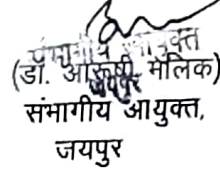 संभागीय आयुक्त
(डॉ. आरूषी मलिक)
जयपुर
संभागीय आयुक्त,
जयपुर